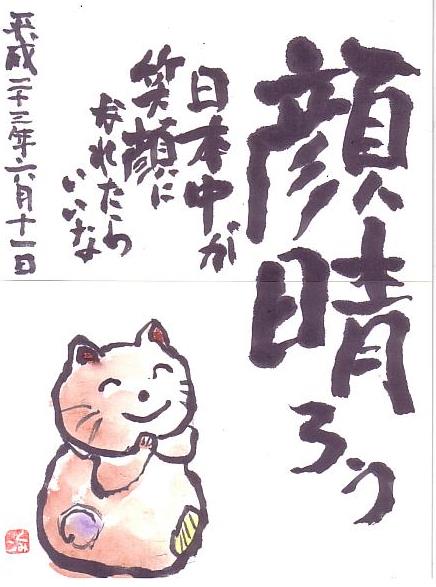 顔晴ろう
日本中が
笑顔に
なれたら
いいな
平成二十三年六月十一日